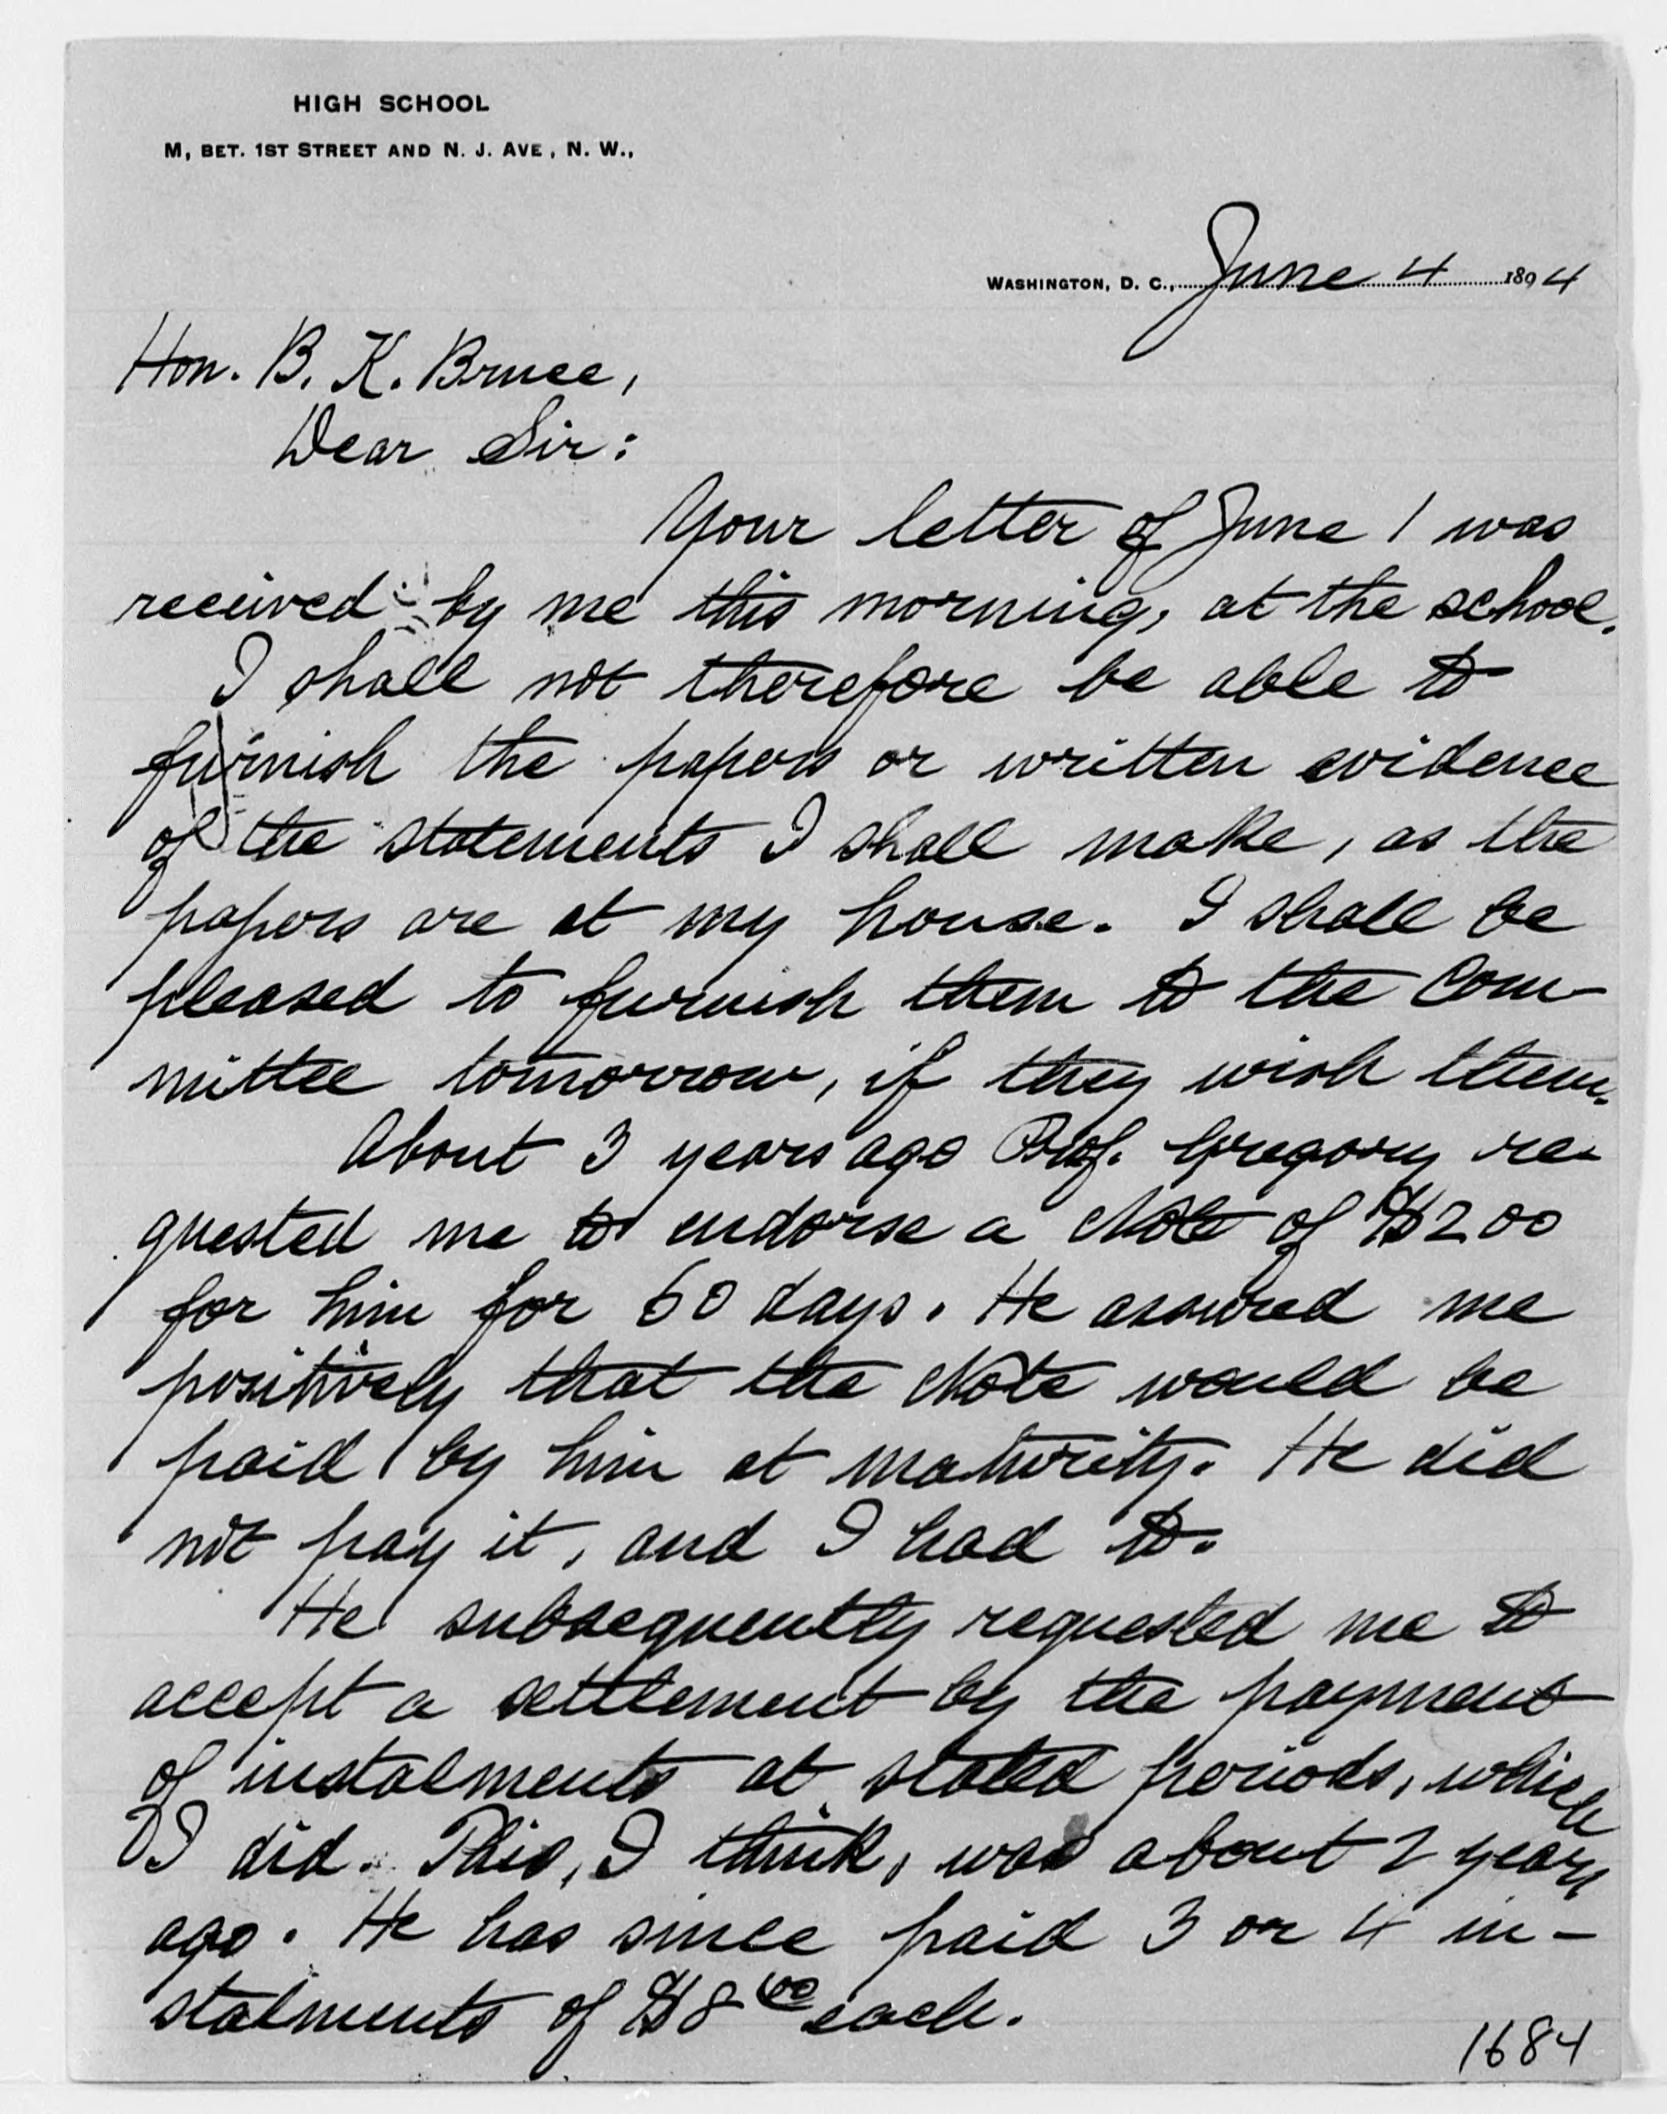 HIGH SCHOOL
M, BET. 1ST STREET AND N. J. AVE, N. W.,
WASHINGTON, D. C., June 4 1894
Hon. B. K. Bruce,
Dear Sir:
Your letter of June 1 was
received by me this morning, at the school.
I shall not therefore be able to
furnish the papers or written evidence
of the statements I shall make, as the
papers are at my house. I shall be
pleased to furnish them to the Com-
mittee tomorrow, if they wish them.
About 3 years ago Prof. Gregory re-
quested me to endorse a Note of $200
for him for 60 days. He assured me
positively that the Note would be
paid by him at maturity. He did
not pay it, and I had to.
He subsequently requested me to
accept a settlement by the payment
of instalments at stated periods, which
I did. This, I think, was about 2 years
ago. He has since paid 3 or 4 in-
stalments of $8 00 each.
1684